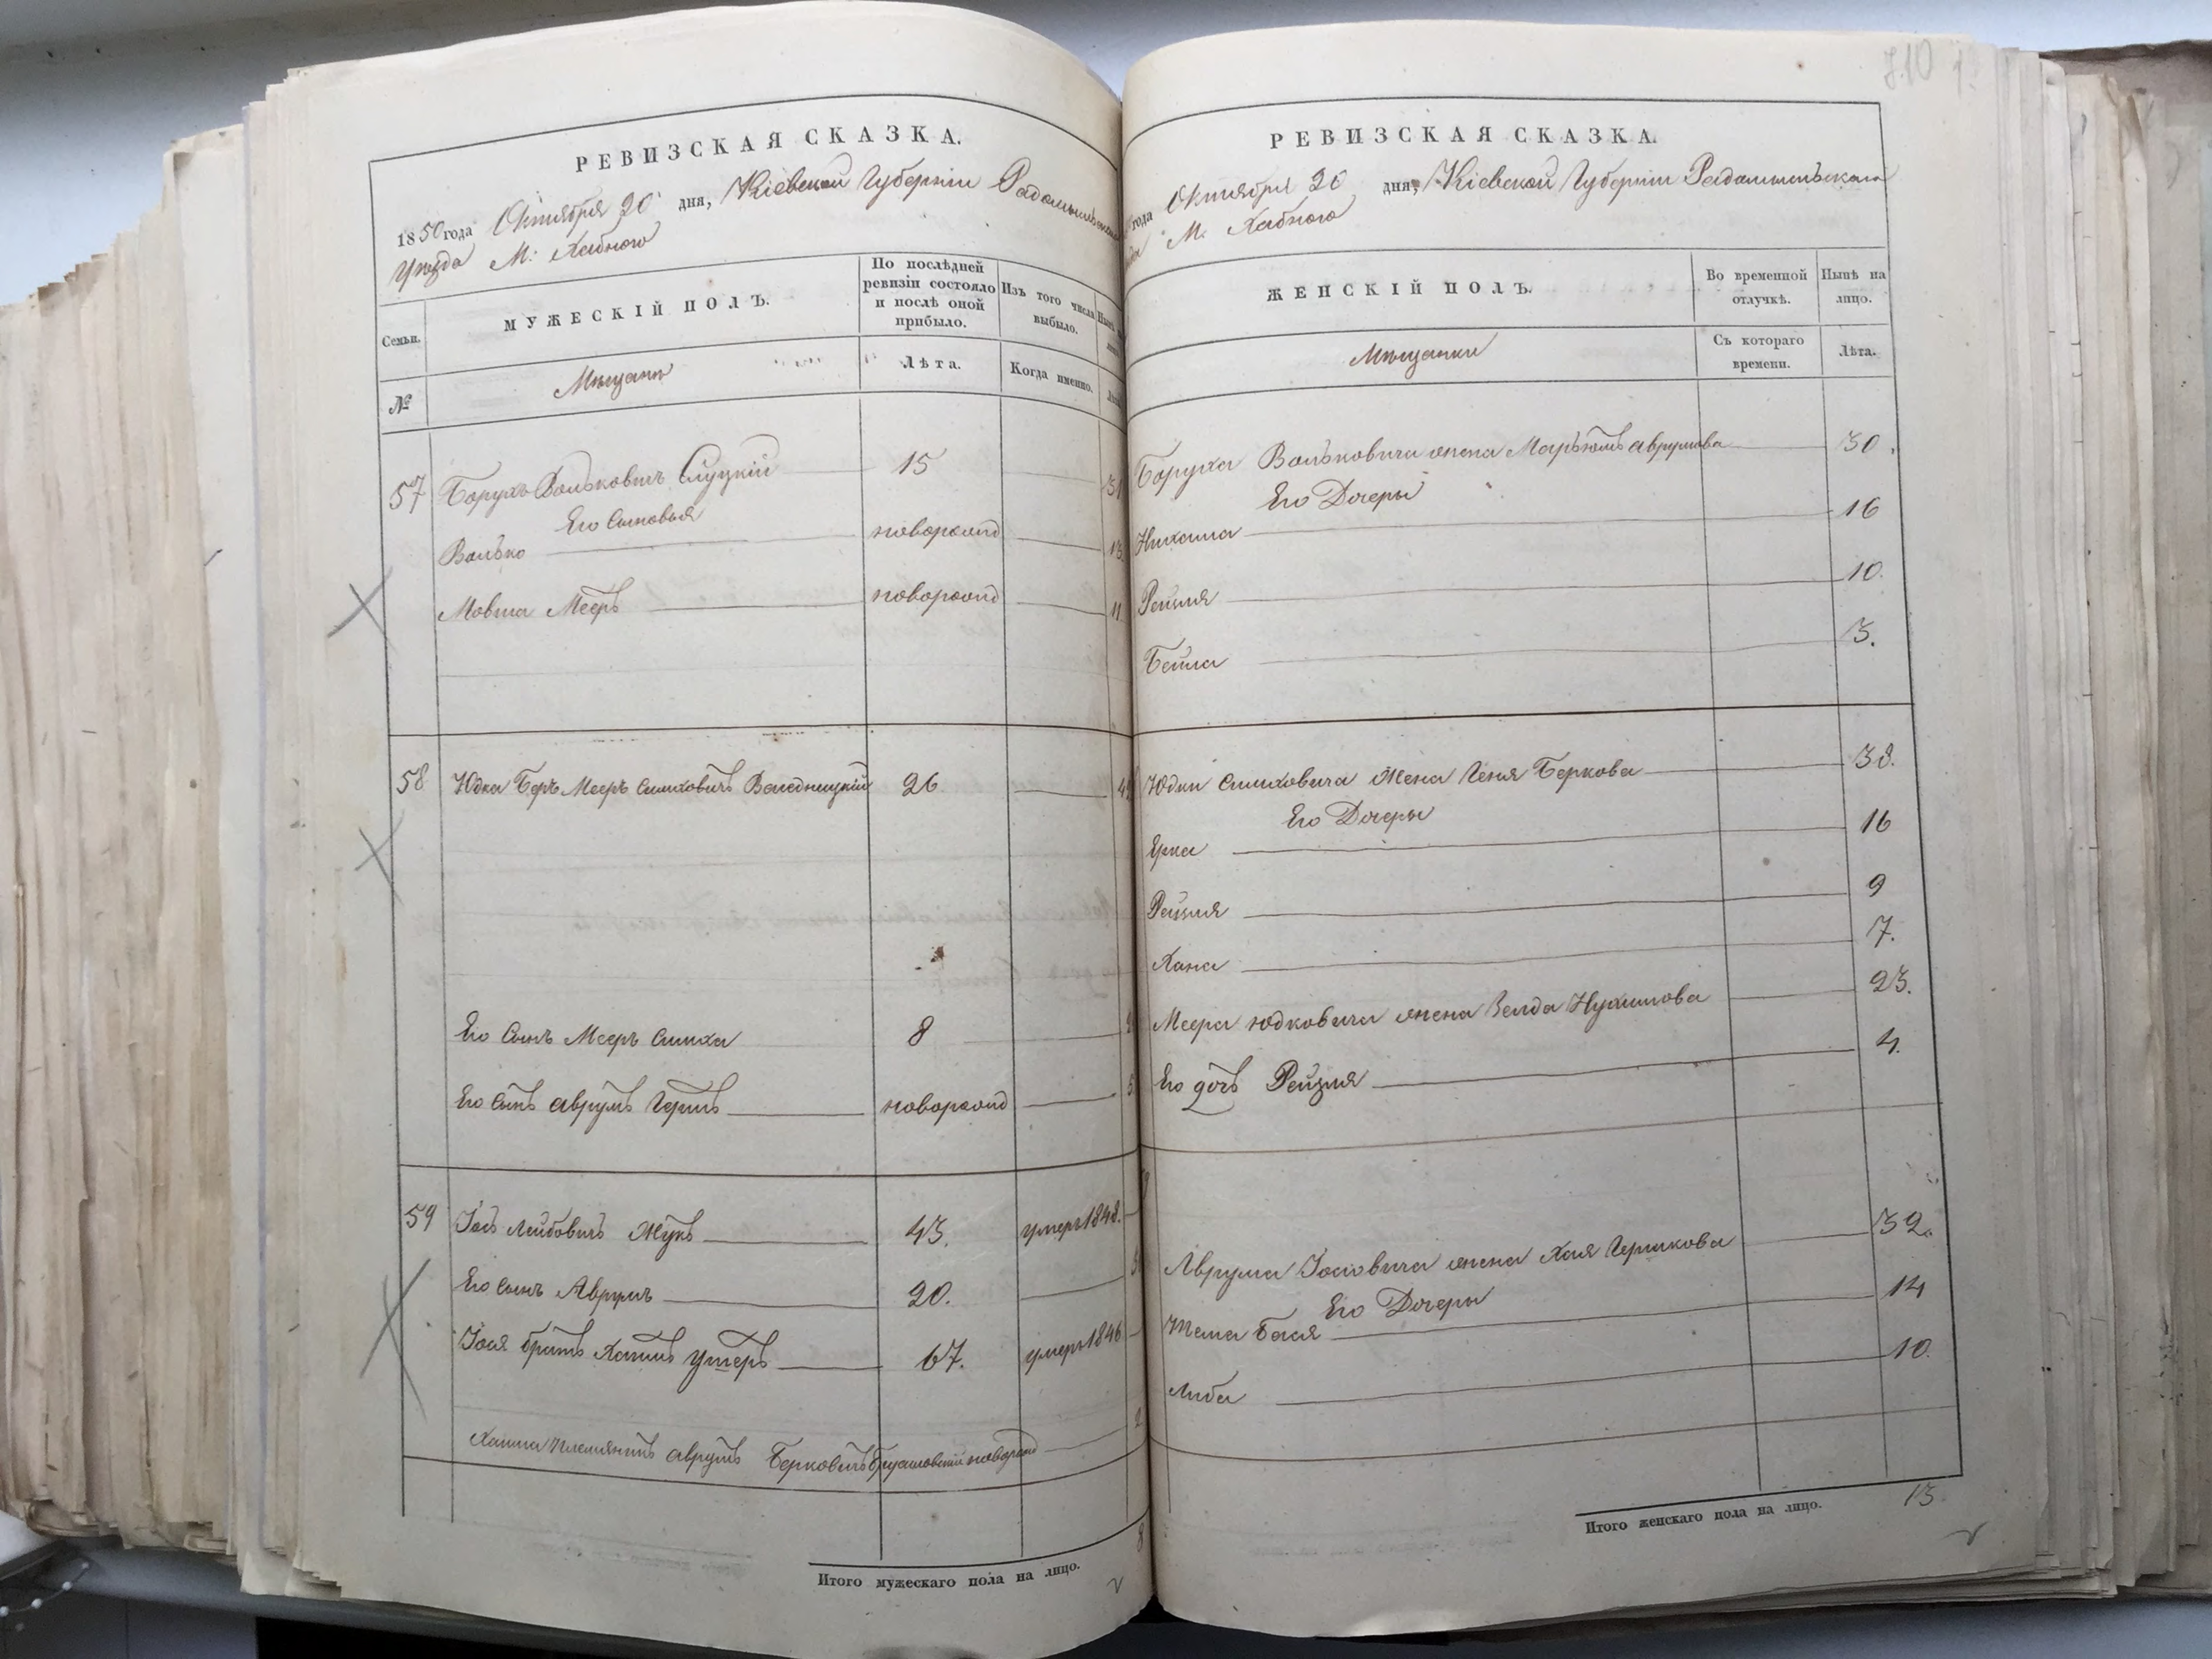 РЕВИЗСКАЯ СКАЗКА.
1850 года Октября 20 дня, Кіевской Губерніи Радомысльскаго
Уѣзда М: Хабного
Семьи.
МУЖЕСКІЙ ПОЛЪ.
По послѣдней ревизіи состояло и послѣ оной прибыло.
Изъ того числа выбыло.
№
Мѣщанъ
Лѣта.
Когда именно.
57 Борухъ Вольковичъ Слуцкій 15 31
Его Сыновья
Волько новорожд 13
Мовша Мееръ новорожд 11
58 Юдка Беръ Мееръ Симховичъ Валедницкій 26
Его Сынъ Мееръ Симха 8
Его Сынъ Аврумъ Гершъ новорожд 5
59 Іось Лейбовичъ Жукъ 43. умеръ 1848.
Его Сынъ Аврумъ 20.
Іося братъ Хаимъ Ушеръ 67. умеръ 1846
Хаима племянникъ Аврумъ Берковичъ новорожд
Итого мужескаго пола на лицо.
8
710
РЕВИЗСКАЯ СКАЗКА.
года Октября 20 дня, Кіевской Губерніи Радомысльскаго
М: Хабного
ЖЕНСКІЙ ПОЛЪ.
Во временной отлучкѣ.
Нынѣ на лицо.
Мѣщанки
Съ котораго времени.
Лѣта.
Боруха Вольковича жена Марьямъ Аврумова 30.
Его Дочеры
Нихама 16
Рейзля 10.
Бейла 3.
Юдки Симховича Жена Геня Беркова 38.
Его Дочеры
Ерка 16
Рейзля 9
Хана 7.
Меера Юдковича жена Зелда Нухимова 23.
Его дочь Рейзля 4.
Аврума Іосіовича жена Хая Гершкова 32.
Его Дочеры
Тема Бася 14
Либа 10.
Итого женскаго пола на лицо. 13